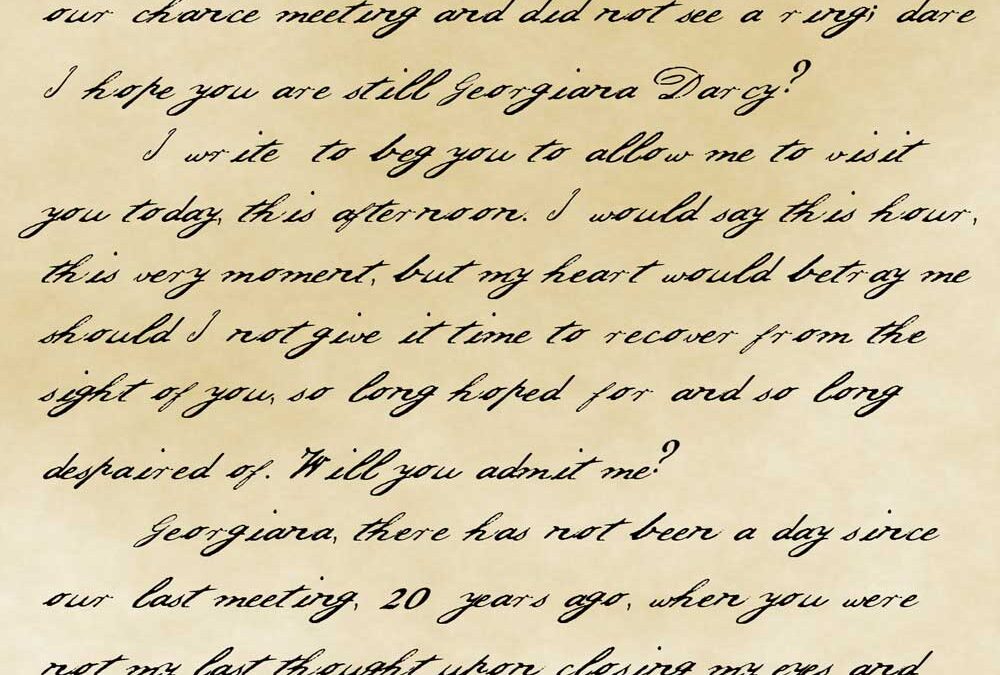 our chance meeting and did not see a ring; dare
I hope you are still Georgiana Darcy?
I write to beg you to allow me to visit
you today, this afternoon. I would say this hour,
this very moment, but my heart would betray me
should I not give it time to recover from the
sight of you, so long hoped for and so long
despaired of. Will you admit me?
Georgiana, there has not been a day since
our last meeting, 20 years ago, when you were
not my last thought upon closing my eyes and